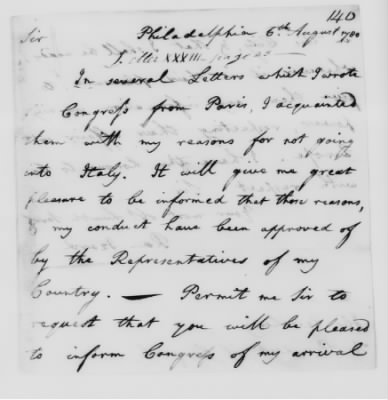 140
Sir Philadelphia 6th August 1780
XXXIII
In several Letters which I wrote
Congress from Paris, I acquainted
them with my reasons for not going
into Italy. It will give me great
pleasure to be informed that those reasons,
& my conduct have been approved of
by the Representatives of my
Country. — Permit me Sir to
request that you will be pleased
to inform Congress of my arrival